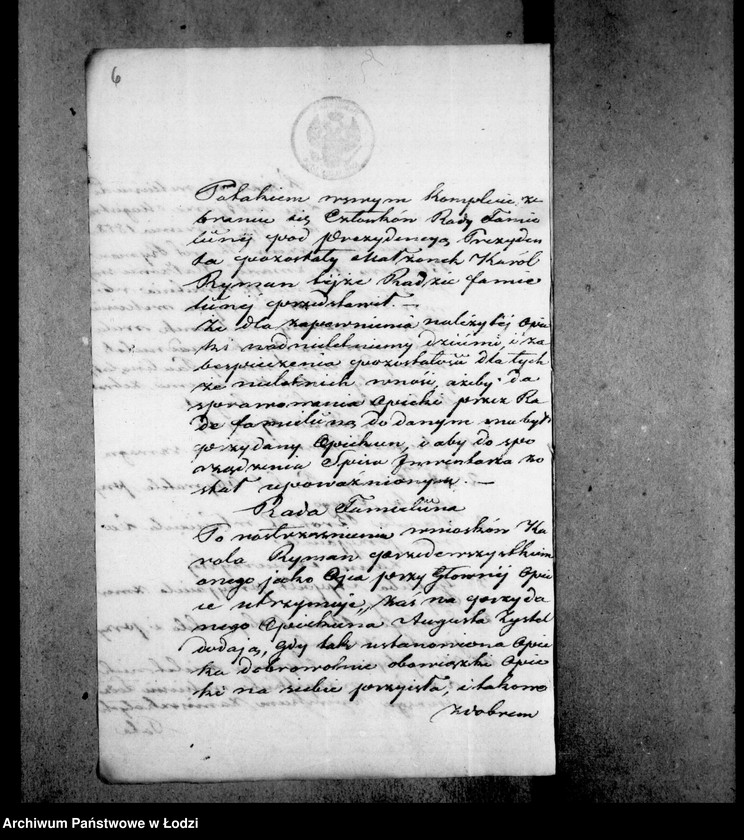 6
Po takiem wswym Komplecie, ze
braniu się Członków Rady Fami
lünej pod Prezydencyą Prezyden
ta pozostały Małżonek Karól
Ryman tejże Radzie famie
lünej przedstawił. –
że dla zapewnienia należytéj Opie
ki nad nieletniemi dziećmi, i za
bespieczenia pozostałości dla tych
że nieletnich wnosi, ażeby da
sprawowania Opieki przez Ra
dę familüną dodanym mu był
przydany Opiekun, i aby do spo
rządzenia Spisu Inwentarza zo
stał upoważnionym. –
Rada Familüna
Po roztrząśnieniu wniosków Ka
rola Ryman przedewszystkiem
onego jako Ojca przy Głównéj Opie
ce utrzymuje, zaś na przyda
nego Opiekuna Augusta Zystel
dodają, gdy tak ustanowiona Opie
ka dobrowolnie obowiązki Opie
ki na siebie przyjęła, i takowe
zdobrem
Archiwum Państwowe w Łodzi